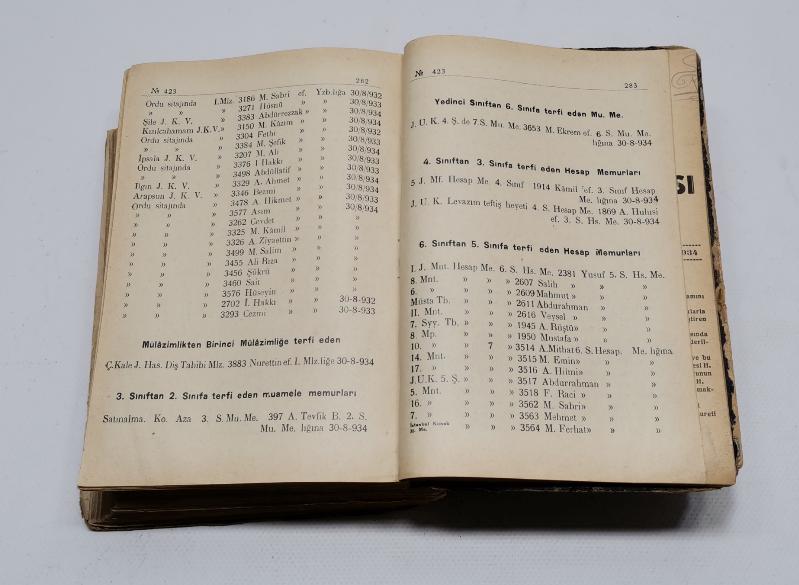 № 423 262
Ordu sıtajında I.Mlz. 3186 M. Sabri ef. Yzb.lığa 30/8/932
» » » 3271 Hüsnü » » 30/8/933
Şile J. K. V. » 3383 Abdürrezzak » » 30/8/934
Kızılcahamam J.K.V. » 3150 M. Kâzım » » 30/8/932
Ordu sitajında » 3304 Fethi » » 30/8/933
» » » 3384 M. Şefik » » 30/8/934
İpsala J. K. V. » 3207 M. Ali » » 30/8/932
Ordu sitajında » 3376 İ Hakkı » » 30/8/933
» » » 3498 Abdüllatif » » 30/8/934
Ilgın J. K. V. » 3329 A. Ahmet » » 30/8/933
Arapsun J. K. V. » 3346 Bezmi » » 30/8/934
Ordu sitajında » 3478 A. Hikmet » » 30/8/934
» » » 3577 Asım » » 30/8/934
» » » 3262 Cevdet » »
» » » 3325 M. Kâmil » »
» » » 3326 A. Ziyaettin » »
» » » 3499 M. Salim » »
» » » 3455 Ali Rıza » »
» » » 3456 Şükrü » »
» » » 3460 Sait » »
» » » 3576 Hüseyin » »
» » » 2702 İ. Hakkı » » 30-8-932
» » » 3293 Cezmi » » 30-8-933
Mülâzimlikten Birinci Mülâzimliğe terfi eden
Ç.Kale J. Has. Diş Tabibi Mlz. 3883 Nurettin ef. I. Mlz.liğe 30-8-934
3. Sınıftan 2. Sınıfa terfi eden muamele memurları
Satınalma. Ko. Aza 3. S. Mu. Me. 397 A. Tevfik B. 2. S.
Mu. Me. lığına 30-8-934
№ 423 283
Yedinci Sınıftan 6. Sınıfa terfi eden Mu. Me.
J. U. K. 4. Ş. de 7.S. Mu. Me. 3653 M. Ekrem ef. 6. S. Mu. Me.
lığına 30-8-934
4. Sınıftan 3. Sınıfa terfi eden Hesap Memurları
5 J. Mf. Hesap Me. 4. Sınıf 1914 Kâmil ef. 3. Sınıf Hesap
Me. lığına 30-8-934
J. U. K. Levazım teftiş heyeti 4. S. Hesap Me. 1869 A. Hulusi
ef. 3. S. Hs. Me. 30-8-934
6. Sınıftan 5. Sınıfa terfi eden Hesap Memurları
I. J. Mnt. Hesap Me. 6. S. Hs. Me. 2381 Yusuf 5. S. Hs. Me.
8. Mnt. » » » 2607 Salih » » »
6. » » » » 2609 Mahmut » » »
Müsta Tb. » » » 2611 Abdurahman » » »
II. Mnt. » » » 2616 Veysel » » »
7. Syy. Tb. » » » 1945 A. Rüştü » » »
8. Mp. » » » 1950 Mustafa » » »
10. » » 7 » 3514 A.Mithat 6. S. Hesap. Me. lığına
14. Mnt. » » » 3515 M. Emin » » »
17. » » » » 3516 A. Hilmi » » »
J.U.K. 5. Ş. » » » 3517 Abdurrahman » » »
5. Mnt. » » » 3518 F. Raci » » »
16. » » » » 3562 M. Sabri » » »
7. » » » » 3563 Mehmet » » »
İstanbul Konak » » » 3564 M. Ferhat » » »
M. Me.
SI
934